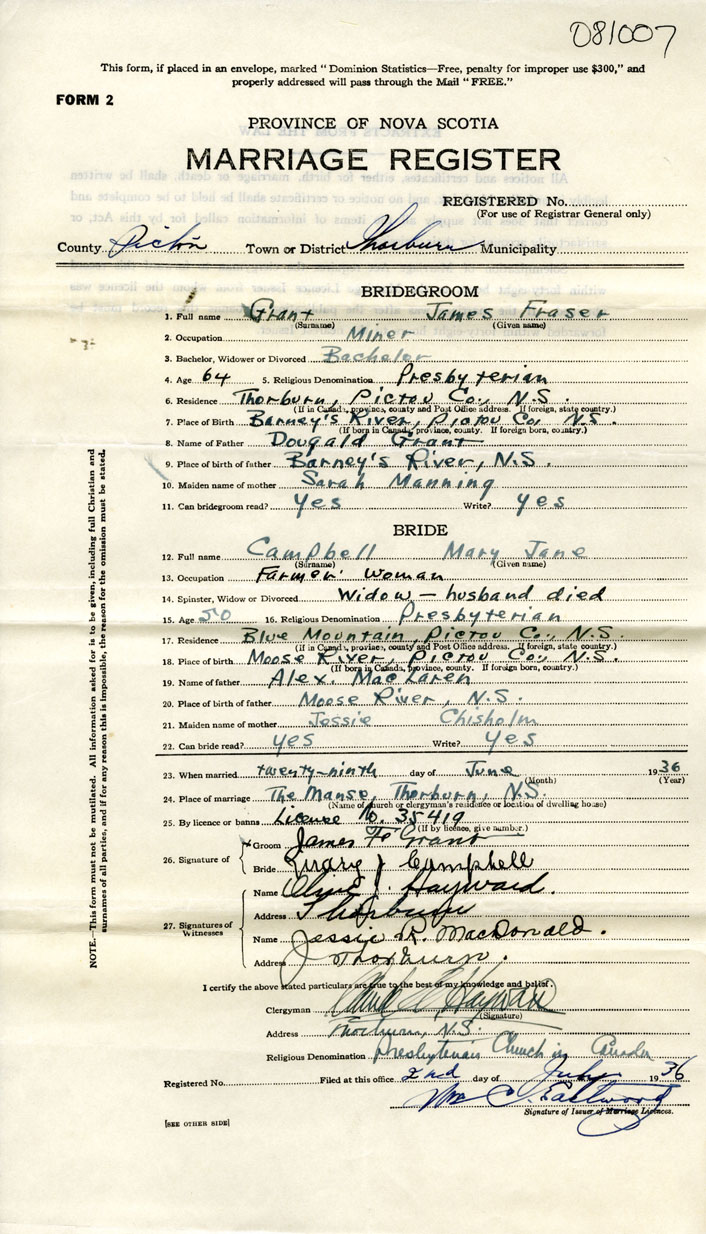 081007
This form, if placed in an envelope, marked "Dominion Statistics—Free, penalty for improper use $300," and
properly addressed will pass through the Mail "FREE."
FORM 2
PROVINCE OF NOVA SCOTIA
MARRIAGE REGISTER
REGISTERED No.
(For use of Registrar General only)
County Pictou Town or District Thorburn Municipality
BRIDEGROOM
1. Full name Grant James Fraser
(Surname) (Given name)
2. Occupation Miner
3. Bachelor, Widower or Divorced Bachelor
4. Age 64 5. Religious Denomination Presbyterian
6. Residence Thorburn, Pictou Co., N.S.
(If in Canada, province, county and Post Office address. If foreign, state country.)
7. Place of Birth Barney's River, Pictou Co, N.S.
(If born in Canada, province, county. If foreign born, country.)
8. Name of Father Dougald Grant
9. Place of birth of father Barney's River, N.S.
10. Maiden name of mother Sarah Manning
11. Can bridegroom read? Yes Write? Yes
BRIDE
12. Full name Campbell Mary Jane
(Surname) (Given name)
13. Occupation Farmer Woman
14. Spinster, Widow or Divorced Widow - husband died
15. Age 50 16. Religious Denomination Presbyterian
17. Residence Blue Mountain, Pictou Co., N.S.
(If in Canada, province, county and Post Office address. If foreign, state country.)
18. Place of birth Moose River, Pictou Co., N.S.
(If born in Canada, province, county. If foreign born, country.)
19. Name of father Alex. MacLaren
20. Place of birth of father Moose River, N.S.
21. Maiden name of mother Jessie Chisholm
22. Can bride read? Yes Write? Yes
23. When married twenty-ninth day of June 1936
(Month) (Year)
24. Place of marriage The Manse, Thorburn, N.S.
(Name of church or clergyman's residence or location of dwelling house)
25. By licence or banns License No. 35419
(If by licence, give number.)
26. Signature of Groom James F Grant
Bride Mary J Campbell
27. Signatures of Witnesses Name Olive J. Hayward.
Address Thorburn
Name Jessie R. MacDonald.
Address Thorburn.
I certify the above stated particulars are true to the best of my knowledge and belief.
Clergyman Hayward
(Signature)
Address Thorburn, N.S.
Religious Denomination Presbyterian Church in Canada
Registered No. Filed at this office 2nd day of July 1936
Wm C. Eastwood
Signature of Issuer of Marriage Licences.
[SEE OTHER SIDE]
NOTE.—This form must not be mutilated. All information asked for is to be given, including full Christian and
surnames of all parties, and if for any reason this is impossible, the reason for the omission must be stated.